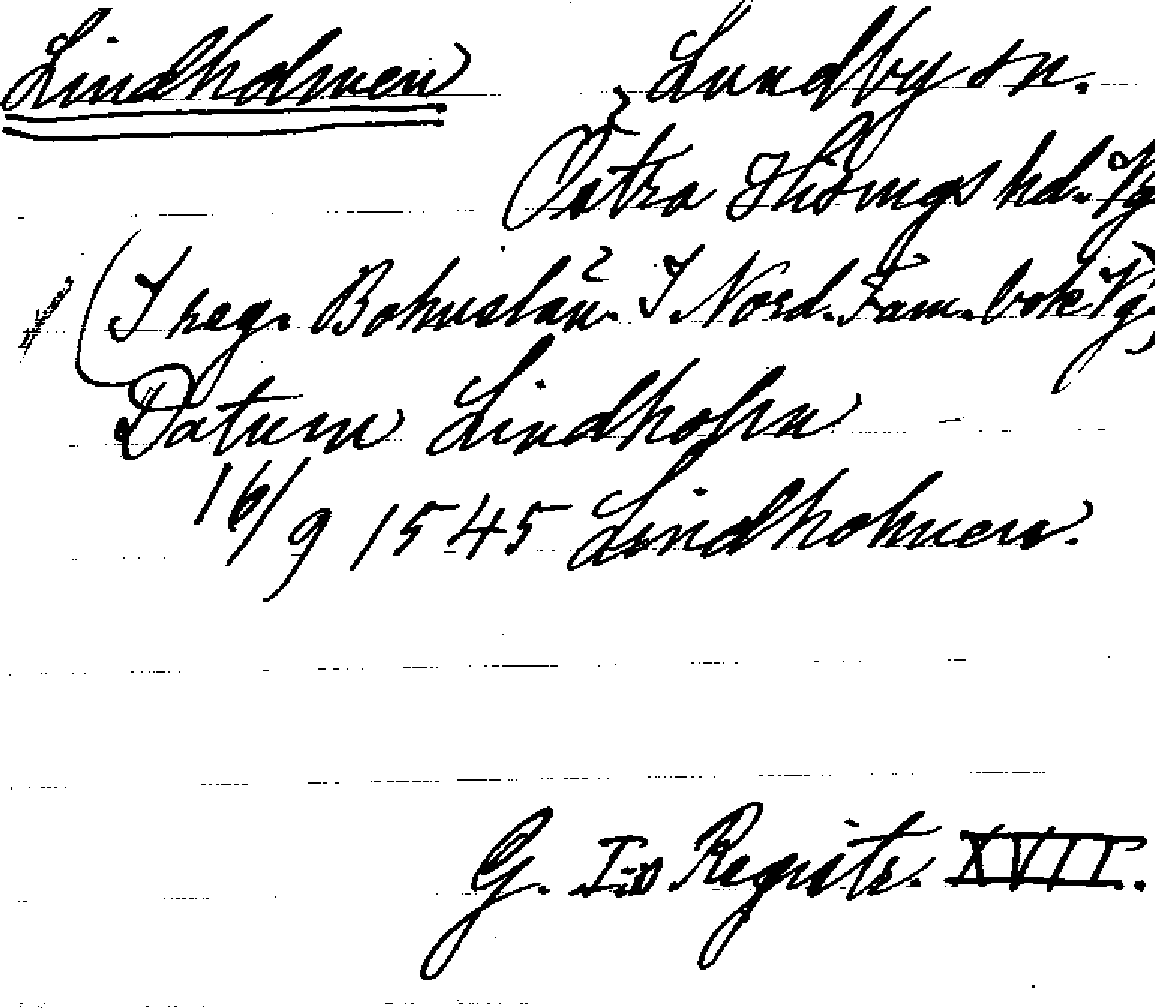 Lindholmen Lundby sn.
Östra Hisings hd. Vg
(I reg. Bohuslän. I Nord. Fam. bok Vg.)
Datum Lindholm
16/9 1545 Lindholmen.
G. I:s Registr. XVII.